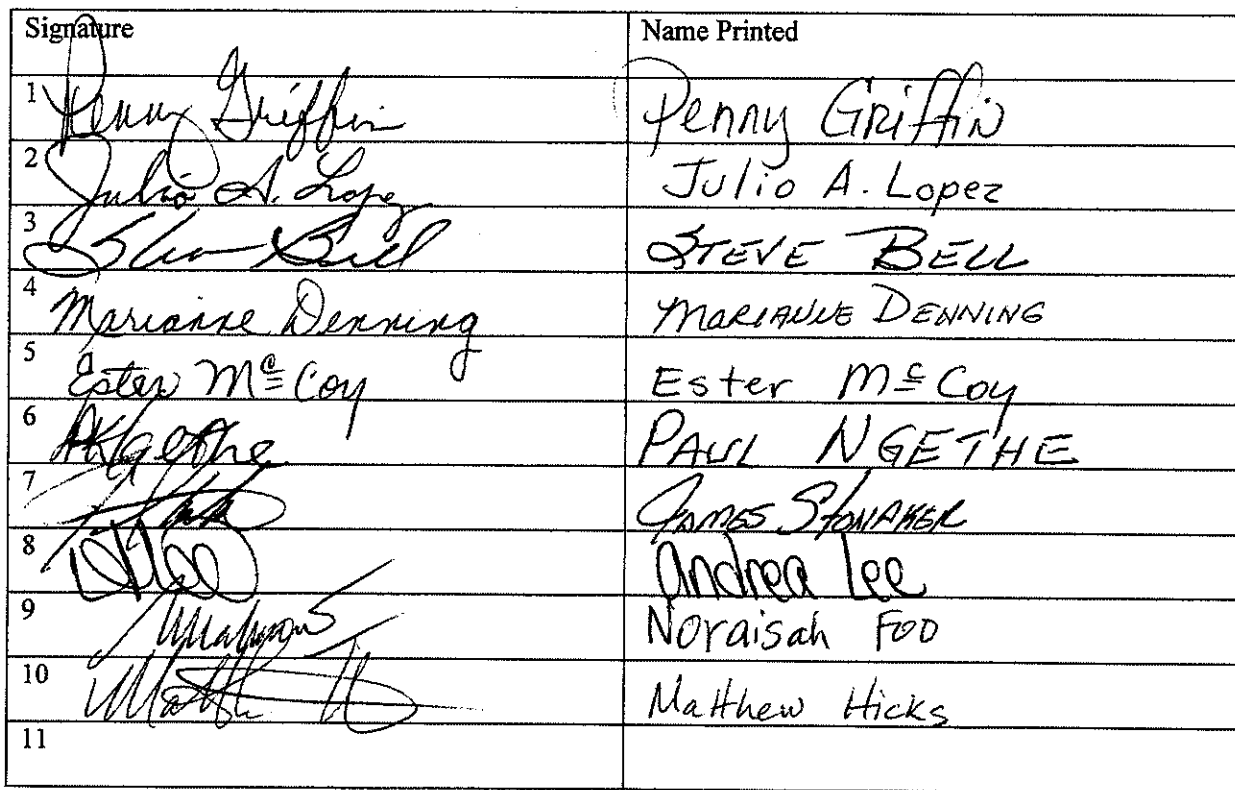 Signature Name Printed
1 Penny Griffin Penny Griffin
2 Julio A. Lopez Julio A. Lopez
3 Steve Bell STEVE BELL
4 Marianne Denning MARIANNE DENNING
5 Ester McCoy Ester McCoy
6 PAUL NGETHE
7 JAMES STONAKER
8 Andrea Lee
9 Noraisah Foo
10 Matthew Hicks
11